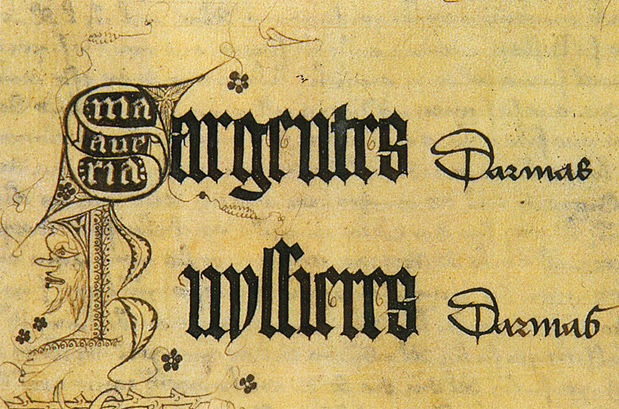 ma
aue
ria:
Sargentes Darmas
Huyssieres Darmas